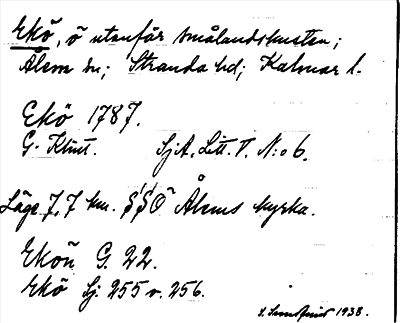 Ekö, ö utanför Smålandskusten;
Ålem sn; Stranda hd; Kalmar l.
Ekö 1787.
G. Klint. SjA. Litt. V. N:o 6.
Läge 7,7 km. SSÖ Ålems kyrka.
Ekön G. 22.
Ekö Sj. 255 o. 256.
1938.